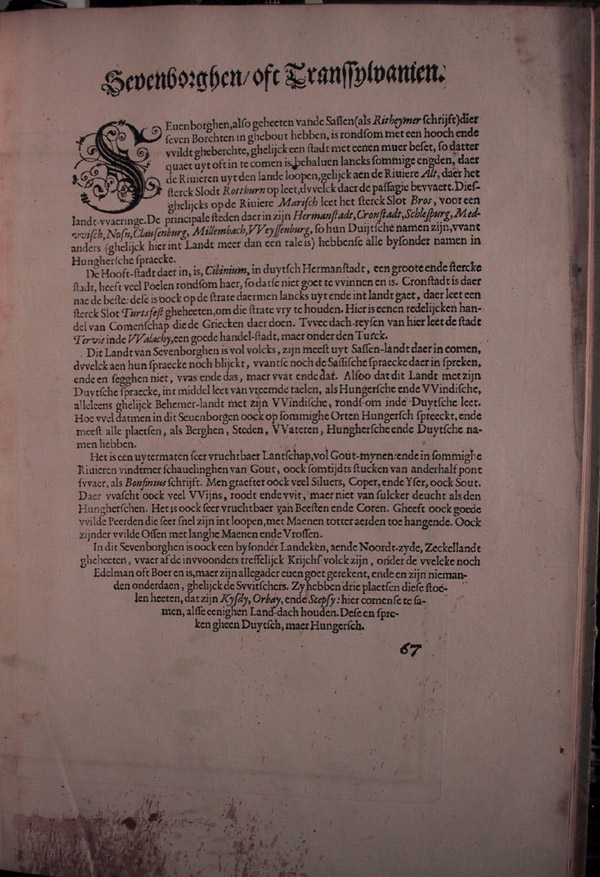 Sevenborghen/oft Transsylvanien.
SEuenborghen, also geheeten vande Sassen (als Ritheymer schrijft) dier
seven Borchten in ghebout hebben, is rondsom met een hooch ende
vvildt gheberchte, ghelijck een stadt met eenen muer beset, so datter
quaet uyt oft in te comen is, behaluen lancks sommige engden, daer
de Riuieren uyt den lande loopen, gelijck aen de Riuiere Alt, daer het
sterck Slodt Rottburn op leet, dvvelck daer de passagie bevvaert. Dies-
ghelijcks op de Riuiere Marisch leet het sterck Slot Bros, voor een
landt-vvaeringe. De principale steden daer in zijn Hermanstadt, Cronstadt, Schlesburg, Med-
vvisch, Nosn, Clausenburg, Millembach, VVeyssenburg, so hun Duijtsche namen zijn, vvant
anders (ghelijck hier int Landt meer dan een tale is) hebbense alle bysonder namen in
Hunghersche spraecke.
De Hooft-stadt daer in, is, Cibinium, in duytsch Hermanstadt, een groote ende stercke
stadt, heeft veel Poelen rondsom haer, so datse niet goet te vvinnen en is. Cronstadt is daer
nae de beste: dese is oock op de strate daermen lancks uyt ende int landt gaet, daer leet een
sterck Slot Turtsfest gheheeten, om die strate vry te houden. Hier is eenen redelijcken han-
del van Comenschap die de Griecken daer doen. Tvvee dach-reysen van hier leet de stadt
Tervis inde VValachy, een goede handel-stadt, maer onder den Turck.
Dit Landt van Sevenborghen is vol volcks, zijn meest uyt Sassen-landt daer in comen,
dvvelck aen hun spraecke noch blijckt, vvantse noch de Sassische spraecke daer in spreken,
ende en segghen niet, vvas ende das, maer vvat ende dat. Alsoo dat dit Landt met zijn
Duytsche spraecke, int middel leet van vreemde taelen, als Hungersche ende VVindische,
alleleens ghelijck Behemer-landt met zijn VVindische, rondsom inde Duytsche leet.
Hoe vvel datmen in dit Seuenborgen oock op sommighe Orten Hungersch spreeckt, ende
meest alle plaetsen, als Berghen, Steden, VVateren, Hunghersche ende Duytsche na-
men hebben.
Het is een uytermaten seer vruchtbaer Lantschap, vol Gout-mynen: ende in sommighe
Riuieren vindtmer schauelinghen van Gout, oock somtijdts stucken van anderhalf pont
svvaer, als Bonfinius schrijft. Men graefter oock veel Siluers, Coper, ende Yser, oock Sout.
Daer vvascht oock veel VVijns, roodt ende vvit, maer niet van sulcker deucht als den
Hungherschen. Het is oock seer vruchtbaer van Beesten ende Coren. Gheeft oock goede
vvilde Peerden die seer snel zijn int loopen, met Maenen totter aerden toe hangende. Oock
zijnder vvilde Ossen met langhe Maenen ende Vrossen.
In dit Sevenborghen is oock een bysonder Landeken, aende Noordt-zyde, Zeckellandt
gheheeten, vvaer af de invvoonders treffelijck Krijchsvolck zijn, onder de vvelcke noch
Edelman oft Boer en is, maer zijn allegader euen goet gerekent, ende en zijn nieman-
den onderdaen, ghelijck de Svvitschers. Zy hebben drie plaetsen diese stoe-
len heeten, dat zijn Kysdy, Orbay, ende Scepsy: hier comense te sa-
men, alsse eenighen Land-dach houden. Dese en spre-
ken gheen Duytsch, maer Hungersch.
67